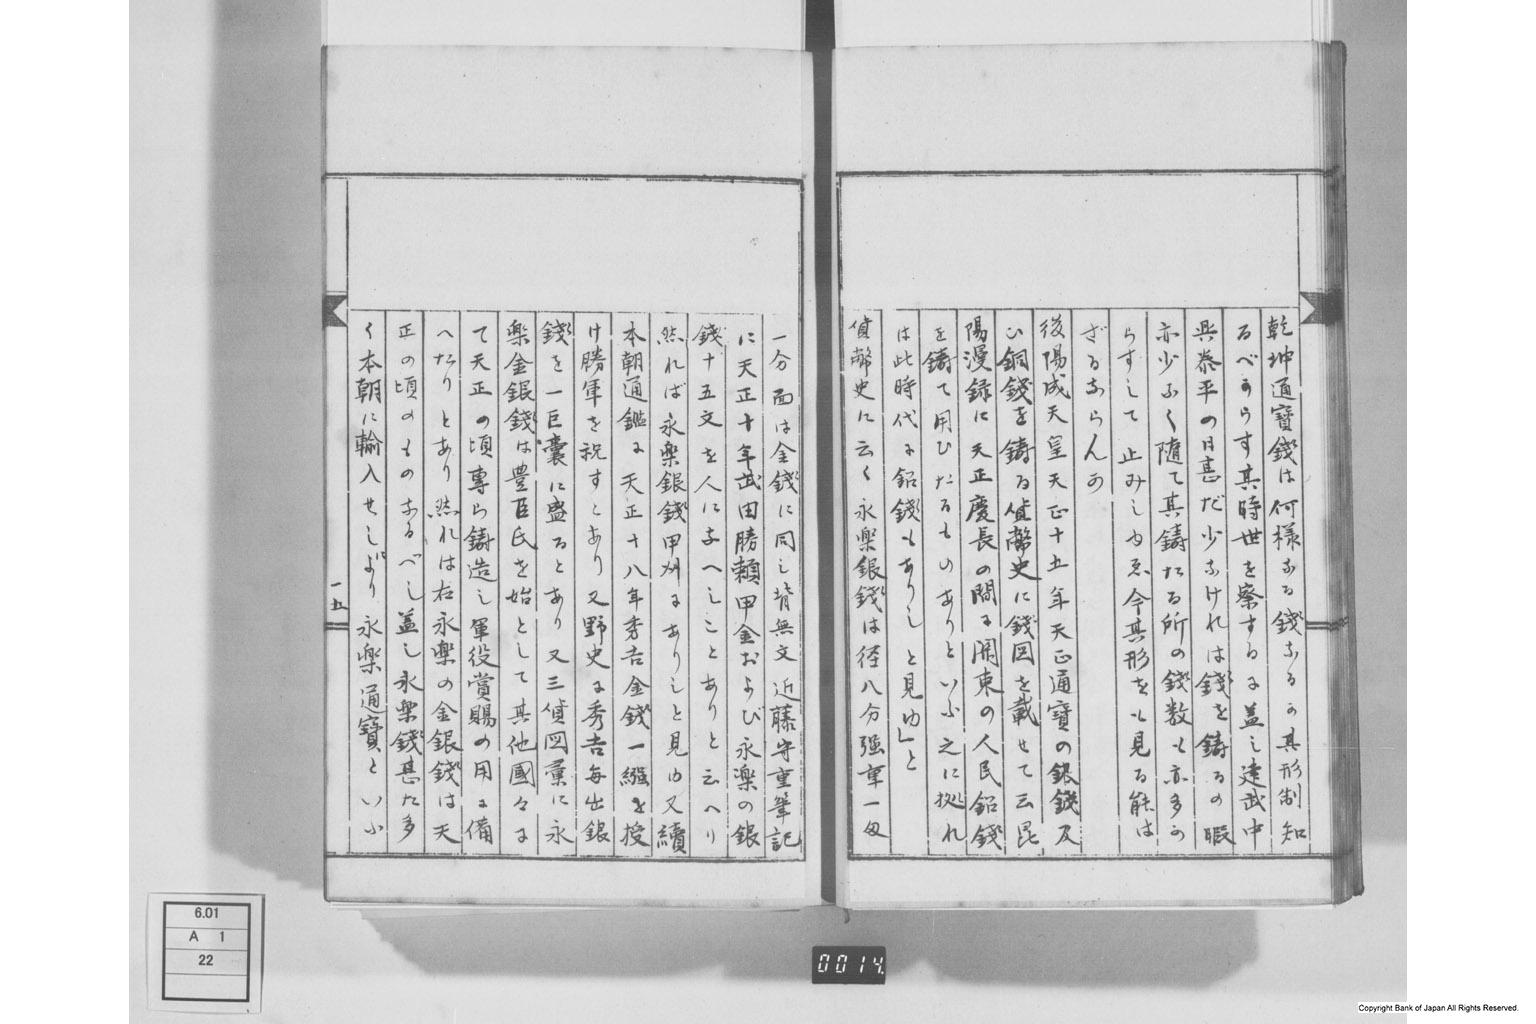 乾坤通寶錢は何樣なる錢なるか其形制知
るべからす其時世を察するに蓋し建武中
興泰平の日甚だ少なけれは錢を鑄るの暇
亦少なく隨て其鑄たる所の錢数も亦多か
らすして止みしゆゑ今其形をも見る能は
ざるならんか
後陽成天皇天正十五年天正通寶の銀錢及
ひ銅錢を鑄る貨幣史に錢図を載せて云昆
陽漫録に天正慶長の間に関東の人民鉛錢
を鑄て用ひたるものありといふ之に拠れ
は此時代に鉛錢もありしと見ゆ」と
貨幣史に云く永樂銀錢は径八分强重一匁
一分面は金錢に同し背無文近藤守重筆記
に天正十年武田勝頼甲金および永楽の銀
錢十五文を人に与へしことありと云へり
然れば永楽銀錢甲州にありしと見ゆ又續
本朝通鑑に天正十八年秀吉金錢一繦を授
け勝軍を祝すとあり又野史に秀吉毎出銀
錢を一巨囊に盛るとあり又三貨図彙に永
楽金銀錢は豊臣氏を始として其他國々に
て天正の頃專ら鑄造し軍役賞賜の用に備
へたりとあり然れは右永樂の金銀錢は天
正の頃のものなるべし蓋し永楽錢甚た多
く本朝に輸入せしより永楽通寶といふ
一五
6.01
A 1
22
0014
Copyright Bank of Japan All Rights Reserved.